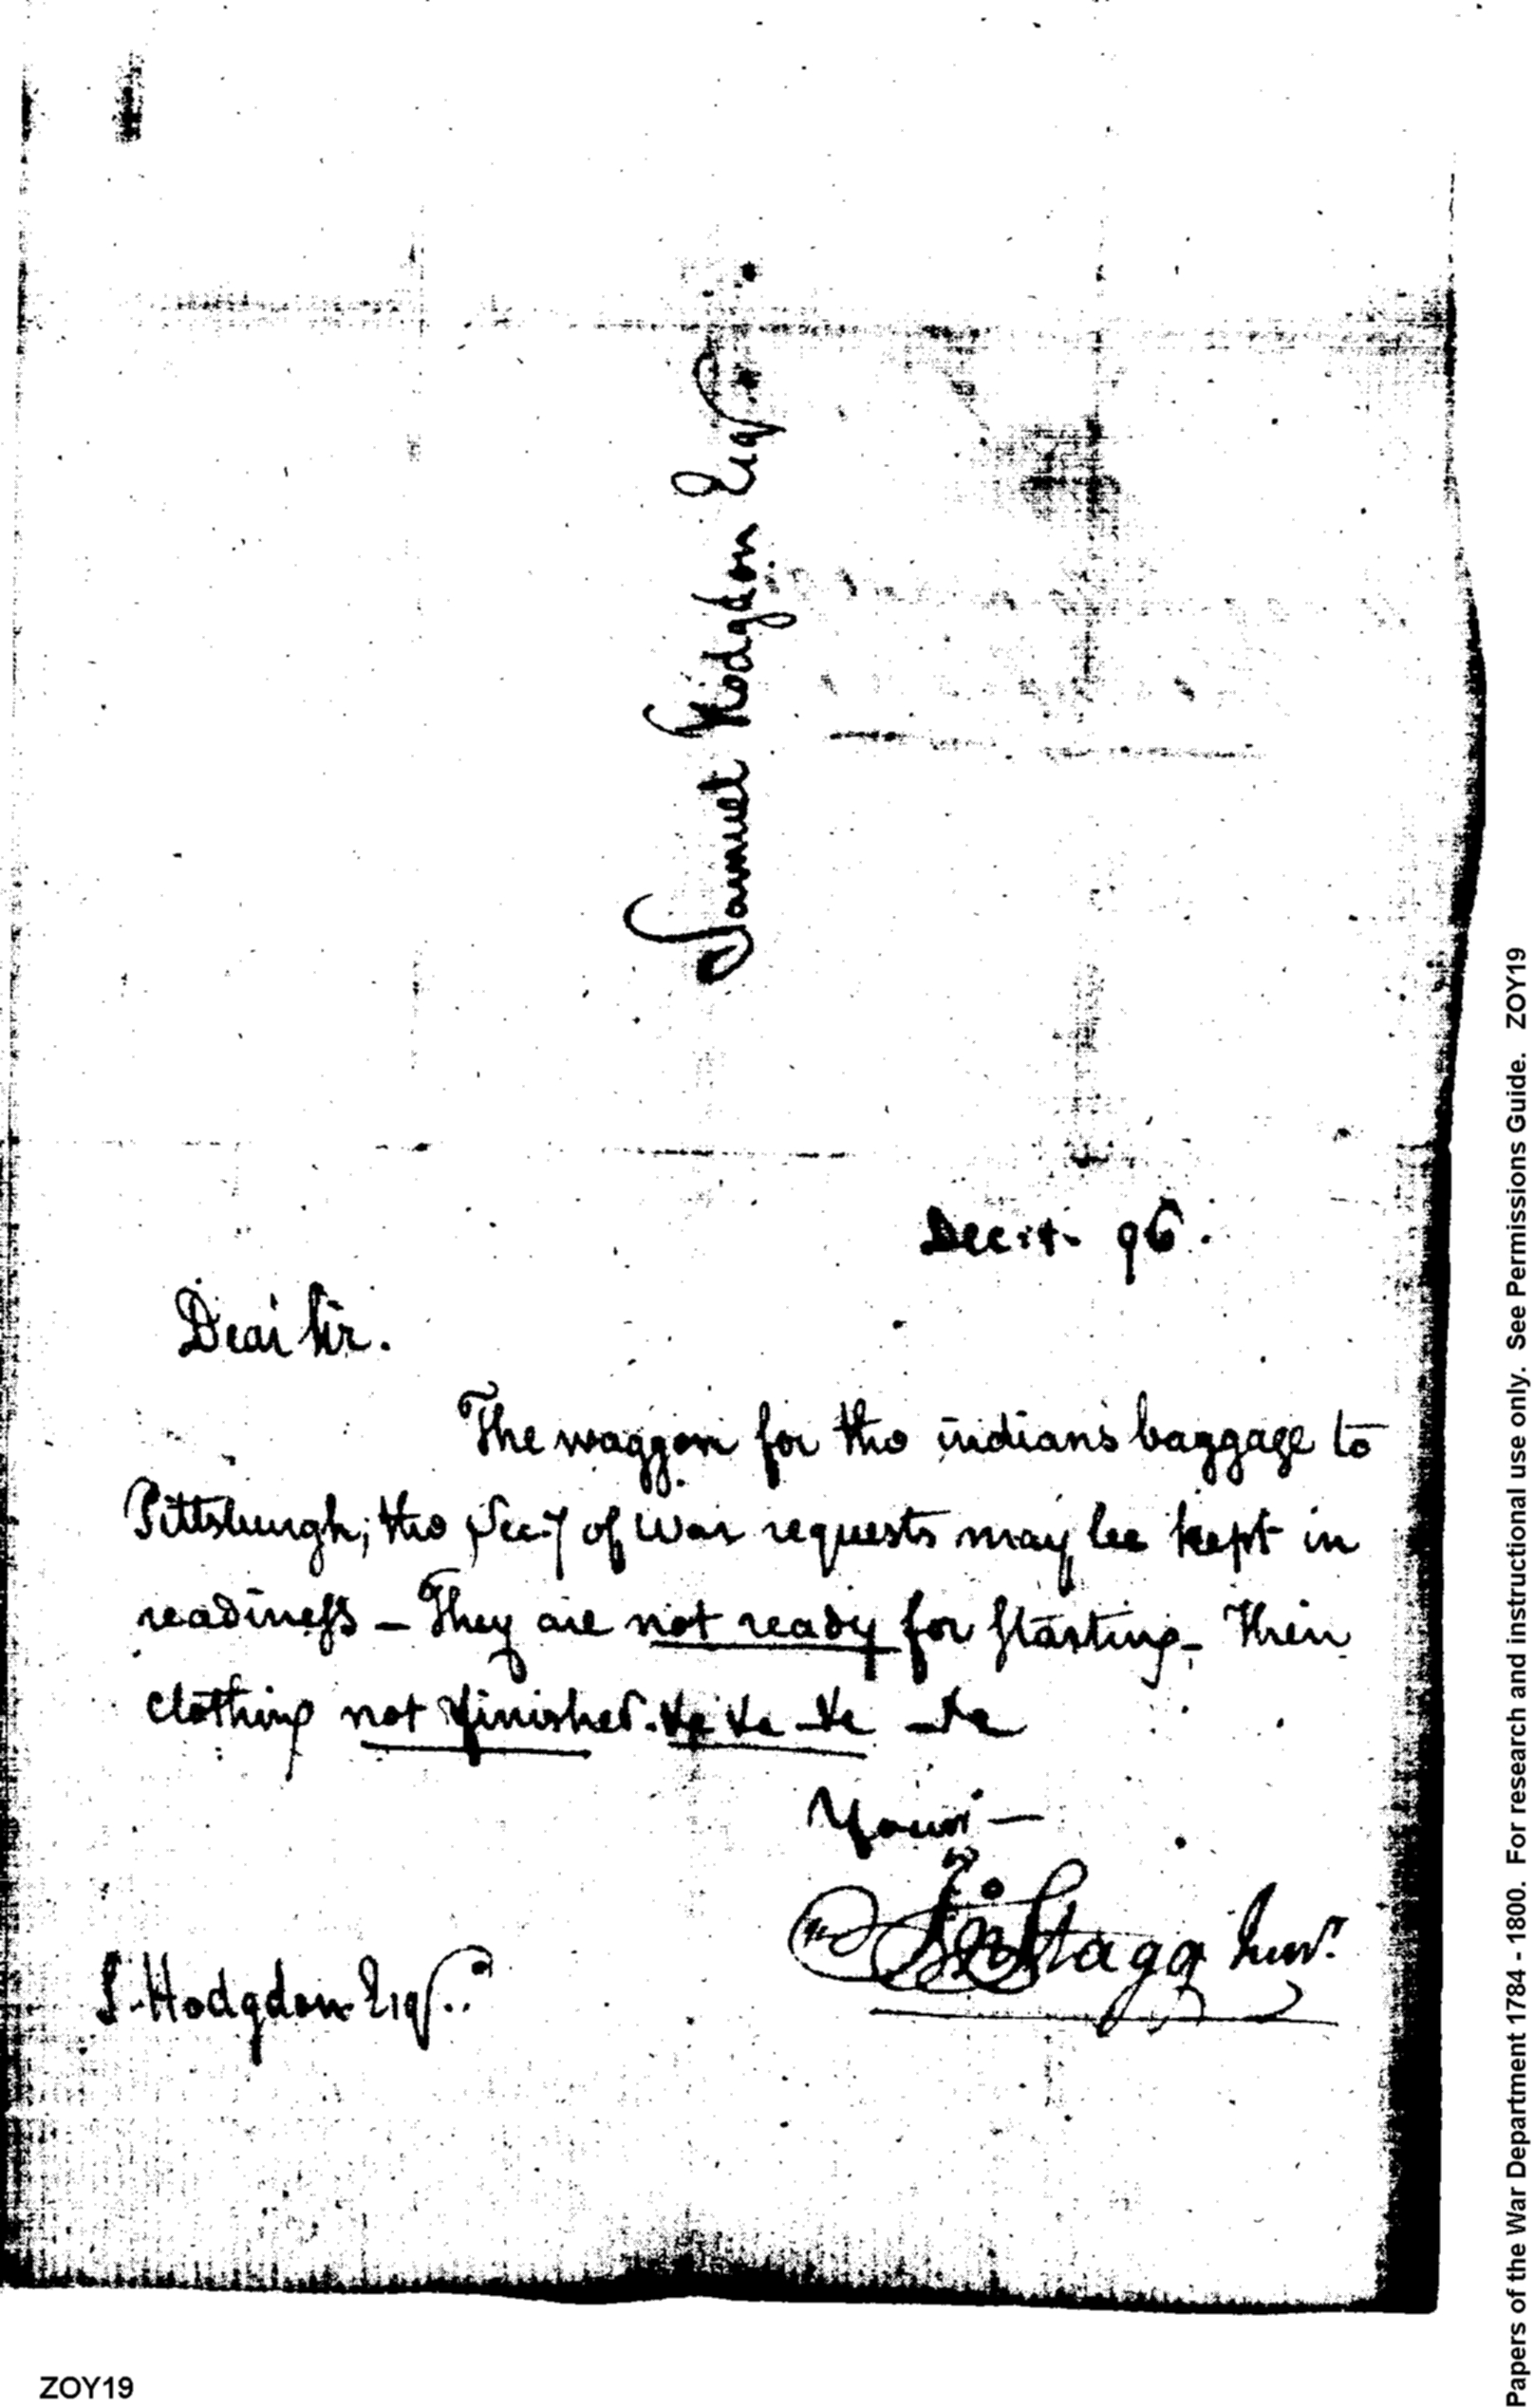 Samuel Hodgdon Esqr.
Dec: 4. 96.
Dear Sir.
The waggon for the indians baggage to
Pittsburgh; the Secy of War requests may be kept in
readiness – They are not ready for starting – Their
clothing not finished. &c &c &c &c
Yours —
Jno Stagg Junr.
S. Hodgdon Esqr.
Papers of the War Department 1784 - 1800. For research and instructional use only. See Permissions Guide. ZOY19
ZOY19